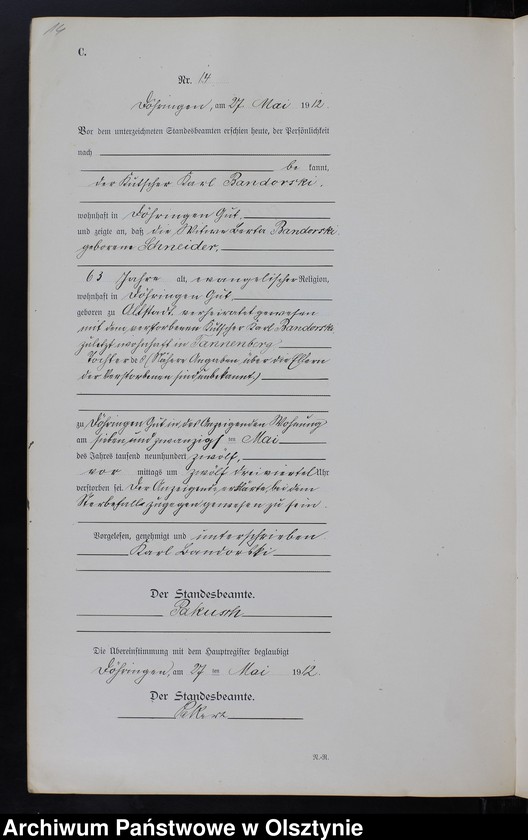 14
C.
Nr. 14
Döhringen, am 27 Mai 1912.
Vor dem unterzeichneten Standesbeamten erschien heute, der Persönlichkeit
nach
be kannt,
der Kutscher Karl Bandorski.
wohnhaft in Döhringen Gut.
und zeigte an, daß die Witwe Berta Bandorski
geborene Schneider,
63 Jahre alt, evangelischer Religion,
wohnhaft in Döhringen Gut
geboren zu Altstadt, verheiratet gewesen
mit dem verstorbenen Kutscher Karl Bandorski
zuletzt wohnhaft in Tannenberg
Tochter des (Nähere Angaben über die Eltern
der Verstorbenen sind unbekannt.)
zu Döhringen Gut in des Anzeigenden Wohnung
am sieben und zwanzigsten Mai
des Jahres tausend neunhundert zwölf,
vor mittags um zwölf dreiviertel Uhr
verstorben sei. Der Anzeigende erklärte, bei dem
Sterbefalle zugegen gewesen zu sein.
Vorgelesen, genehmigt und unterschrieben
Karl Bandorski
Der Standesbeamte.
Die Übereinstimmung mit dem Hauptregister beglaubigt
Döhringen, am 27 ten Mai 1912.
Der Standesbeamte.
N.-R.
Archiwum Państwowe w Olsztynie